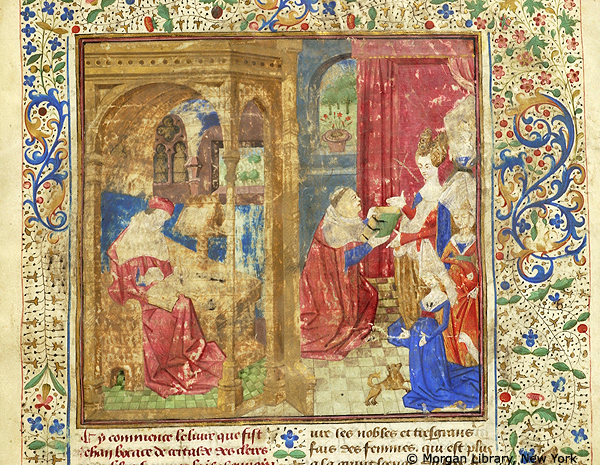 Cy commence le liure que fist
Jehan bocace de certalde des cleres
ure les nobles et tresgrans
fais des femmes. qui est plus
a la grant
© Morgan Library, New York